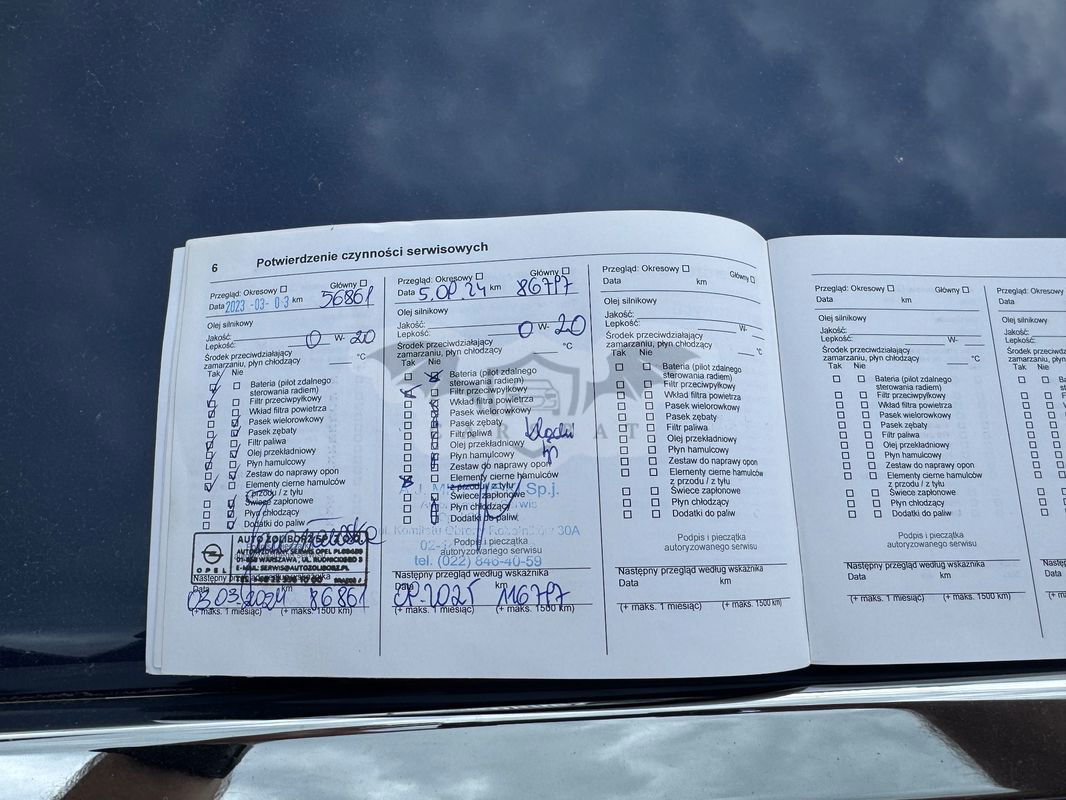 6 Potwierdzenie czynności serwisowych
Przegląd: Okresowy Główny
Data 2023-03-03 km 56861
Olej silnikowy
Jakość:
Lepkość: 0 W- 20
Środek przeciwdziałający
zamarzaniu, płyn chłodzący °C
Tak Nie
Bateria (pilot zdalnego
sterowania radiem)
Filtr przeciwpyłkowy
Wkład filtra powietrza
Pasek wielorowkowy
Pasek zębaty
Filtr paliwa
Olej przekładniowy
Płyn hamulcowy
Zestaw do naprawy opon
Elementy cierne hamulców
z przodu / z tyłu
Świece zapłonowe
Płyn chłodzący
Dodatki do paliw
OPEL
AUTO ŻOLIBORZ SP. Z O.O.
AUTORYZOWANY SERWIS OPEL
01-858 WARSZAWA, UL.
E-MAIL: SERWIS@AUTOZOLIBORZ.PL
Następny przegląd według wskaźnika
Data km
03.03.2024 86861
(+ maks. 1 miesiąc) (+ maks. 1500 km)
Przegląd: Okresowy Główny
Data km 86797
Olej silnikowy
Jakość:
Lepkość: 0 W- 20
Środek przeciwdziałający
zamarzaniu, płyn chłodzący °C
Tak Nie
Bateria (pilot zdalnego
sterowania radiem)
Filtr przeciwpyłkowy
Wkład filtra powietrza
Pasek wielorowkowy
Pasek zębaty
Filtr paliwa
Olej przekładniowy
Płyn hamulcowy
Zestaw do naprawy opon
Elementy cierne hamulców
z przodu / z tyłu
Świece zapłonowe
Płyn chłodzący
Dodatki do paliw
Sp.j.
30A
tel. (022) 846-40-59
Podpis i pieczątka
autoryzowanego serwisu
Następny przegląd według wskaźnika
Data km
2025 116797
(+ maks. 1 miesiąc) (+ maks. 1500 km)
Przegląd: Okresowy Główny
Data km
Olej silnikowy
Jakość:
Lepkość: W-
Środek przeciwdziałający
zamarzaniu, płyn chłodzący °C
Tak Nie
Bateria (pilot zdalnego
sterowania radiem)
Filtr przeciwpyłkowy
Wkład filtra powietrza
Pasek wielorowkowy
Pasek zębaty
Filtr paliwa
Olej przekładniowy
Płyn hamulcowy
Zestaw do naprawy opon
Elementy cierne hamulców
z przodu / z tyłu
Świece zapłonowe
Płyn chłodzący
Dodatki do paliw
Podpis i pieczątka
autoryzowanego serwisu
Następny przegląd według wskaźnika
Data km
(+ maks. 1 miesiąc) (+ maks. 1500 km)
Przegląd: Okresowy Główny
Data km
Olej silnikowy
Jakość:
Lepkość: W-
Środek przeciwdziałający
zamarzaniu, płyn chłodzący °C
Tak Nie
Bateria (pilot zdalnego
sterowania radiem)
Filtr przeciwpyłkowy
Wkład filtra powietrza
Pasek wielorowkowy
Pasek zębaty
Filtr paliwa
Olej przekładniowy
Płyn hamulcowy
Zestaw do naprawy opon
Elementy cierne hamulców
z przodu / z tyłu
Świece zapłonowe
Płyn chłodzący
Dodatki do paliw
Podpis i pieczątka
autoryzowanego serwisu
Następny przegląd według wskaźnika
Data km
(+ maks. 1 miesiąc) (+ maks. 1500 km)
Przegląd: Okresowy
Data
Olej silnikowy
Jakość:
Lepkość:
Środek przeciwdziałający
zamarzaniu, płyn
Tak Nie